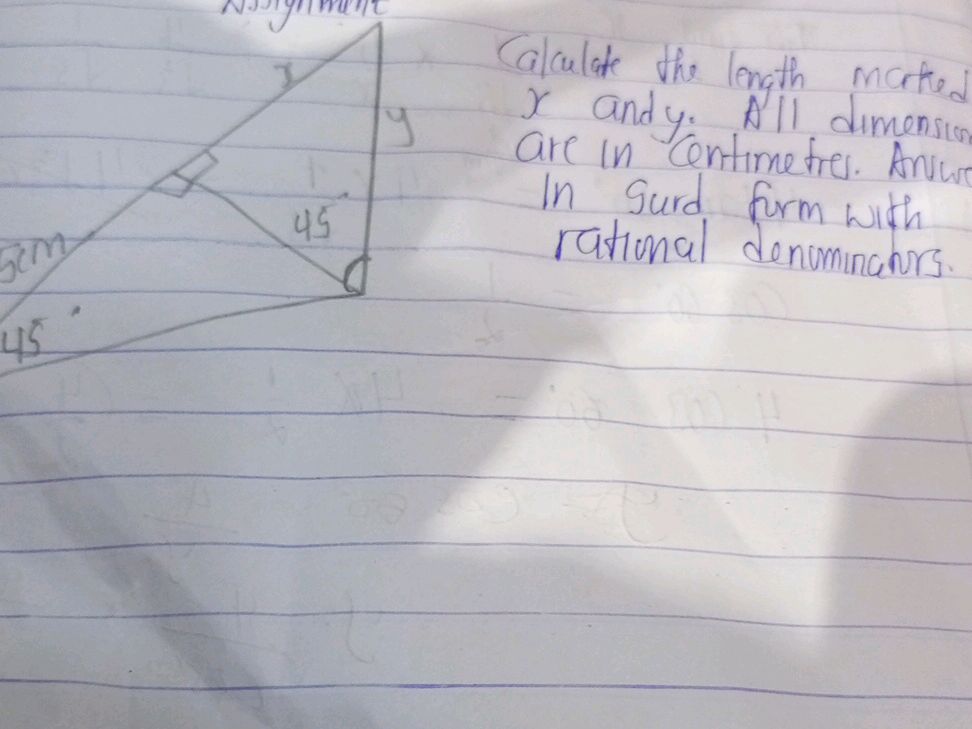 Assignment
x
y
45°
5cm
45°
Calculate the length marked
x and y. All dimension
are in Centimetres. Answe
In Surd form with
rational denominators.